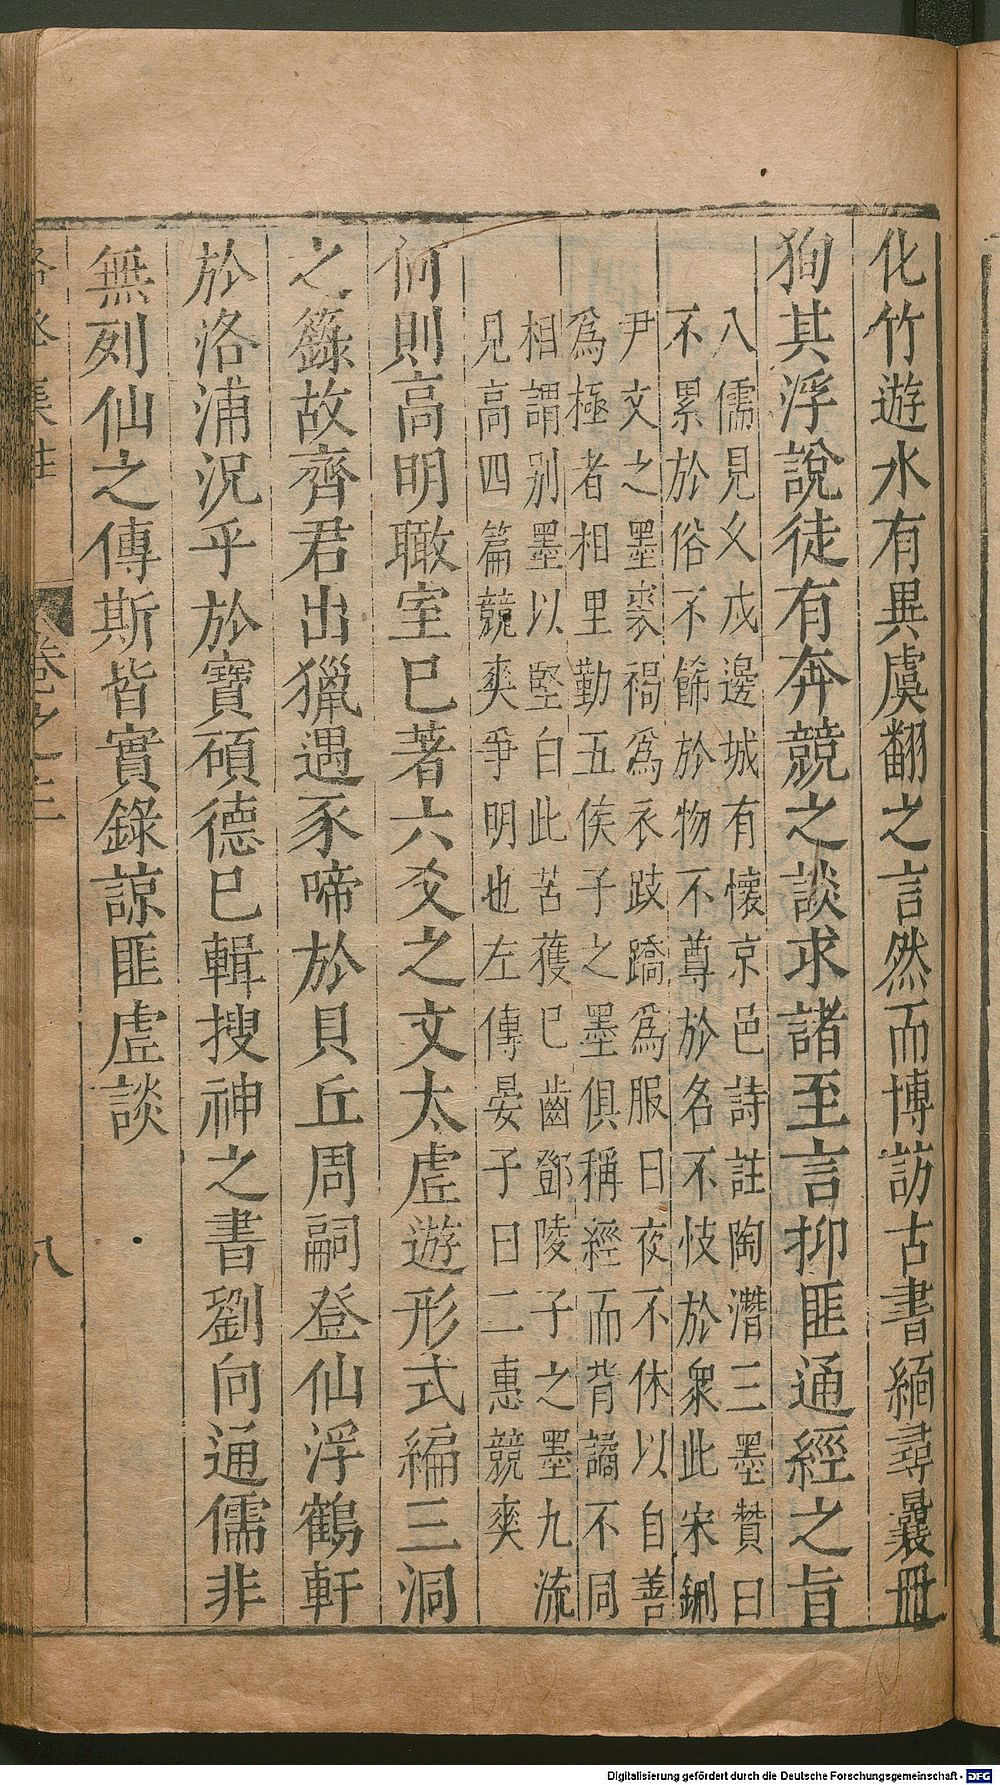 化竹遊水有異虞翻之言然而博訪古書緬尋曩冊
狥其浮說徒有奔競之談求諸至言抑匪通經之旨
八儒見攵戍邊城有懷京邑詩註陶潛三墨贊曰
不累於俗不餙於物不尊於名不忮於衆此宋鈃
尹文之墨裘褐爲衣跂蹻爲服日夜不休以自善
爲極者相里勤五侯子之墨俱稱經而背譎不同
相謂别墨以堅白此苦獲巳齒鄧陵子之墨九流
見高四篇競爽爭明也左傳晏子曰二惠競爽
何則高明瞰室已著六爻之文太虛遊形式編三洞
之籙故齊君出獵遇豕啼於貝丘周嗣登仙浮鶴軒
於洛浦況乎於寶碩德已輯搜神之書劉向通儒非
無列仙之傳斯皆實錄諒匪虛談
集註
卷之三
八
Digitalisierung gefördert durch die Deutsche Forschungsgemeinschaft - DFG